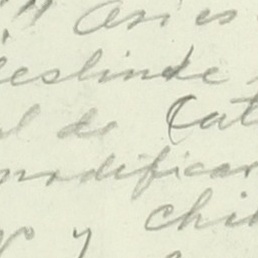 " Así es
deslinde
l de Cat
modificar
y chi